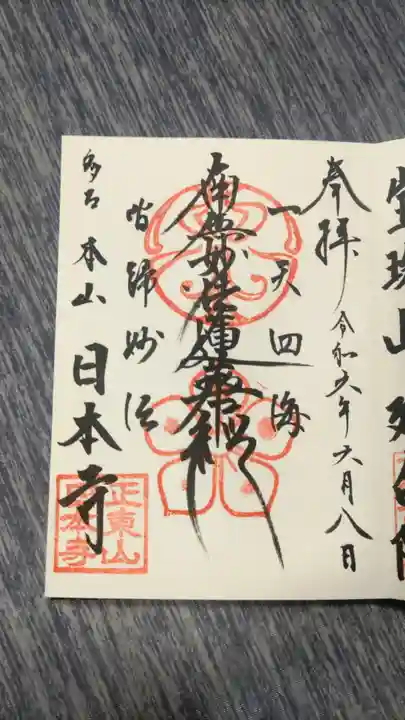 奉拝 令和六年六月八日
一天四海
南無妙法蓮華経
皆歸妙法
多古 本山 日本寺
正東山
日本寺